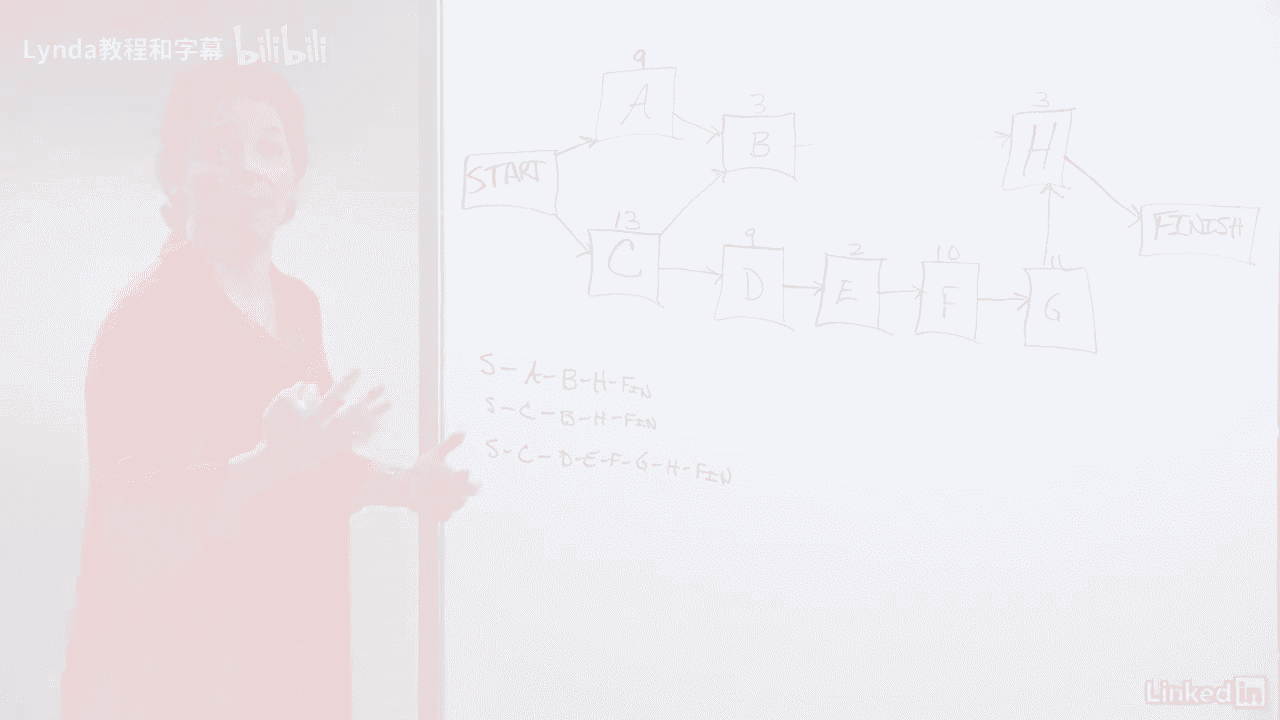 Lynda教程和字幕 bilibili
9
A
3
B
3
H
START
FINISH
13
C
9
D
2
E
10
F
11
G
S-A-B-H-FIN
S-C-B-H-FIN
S-C-D-E-F-G-H-FIN
Linked in